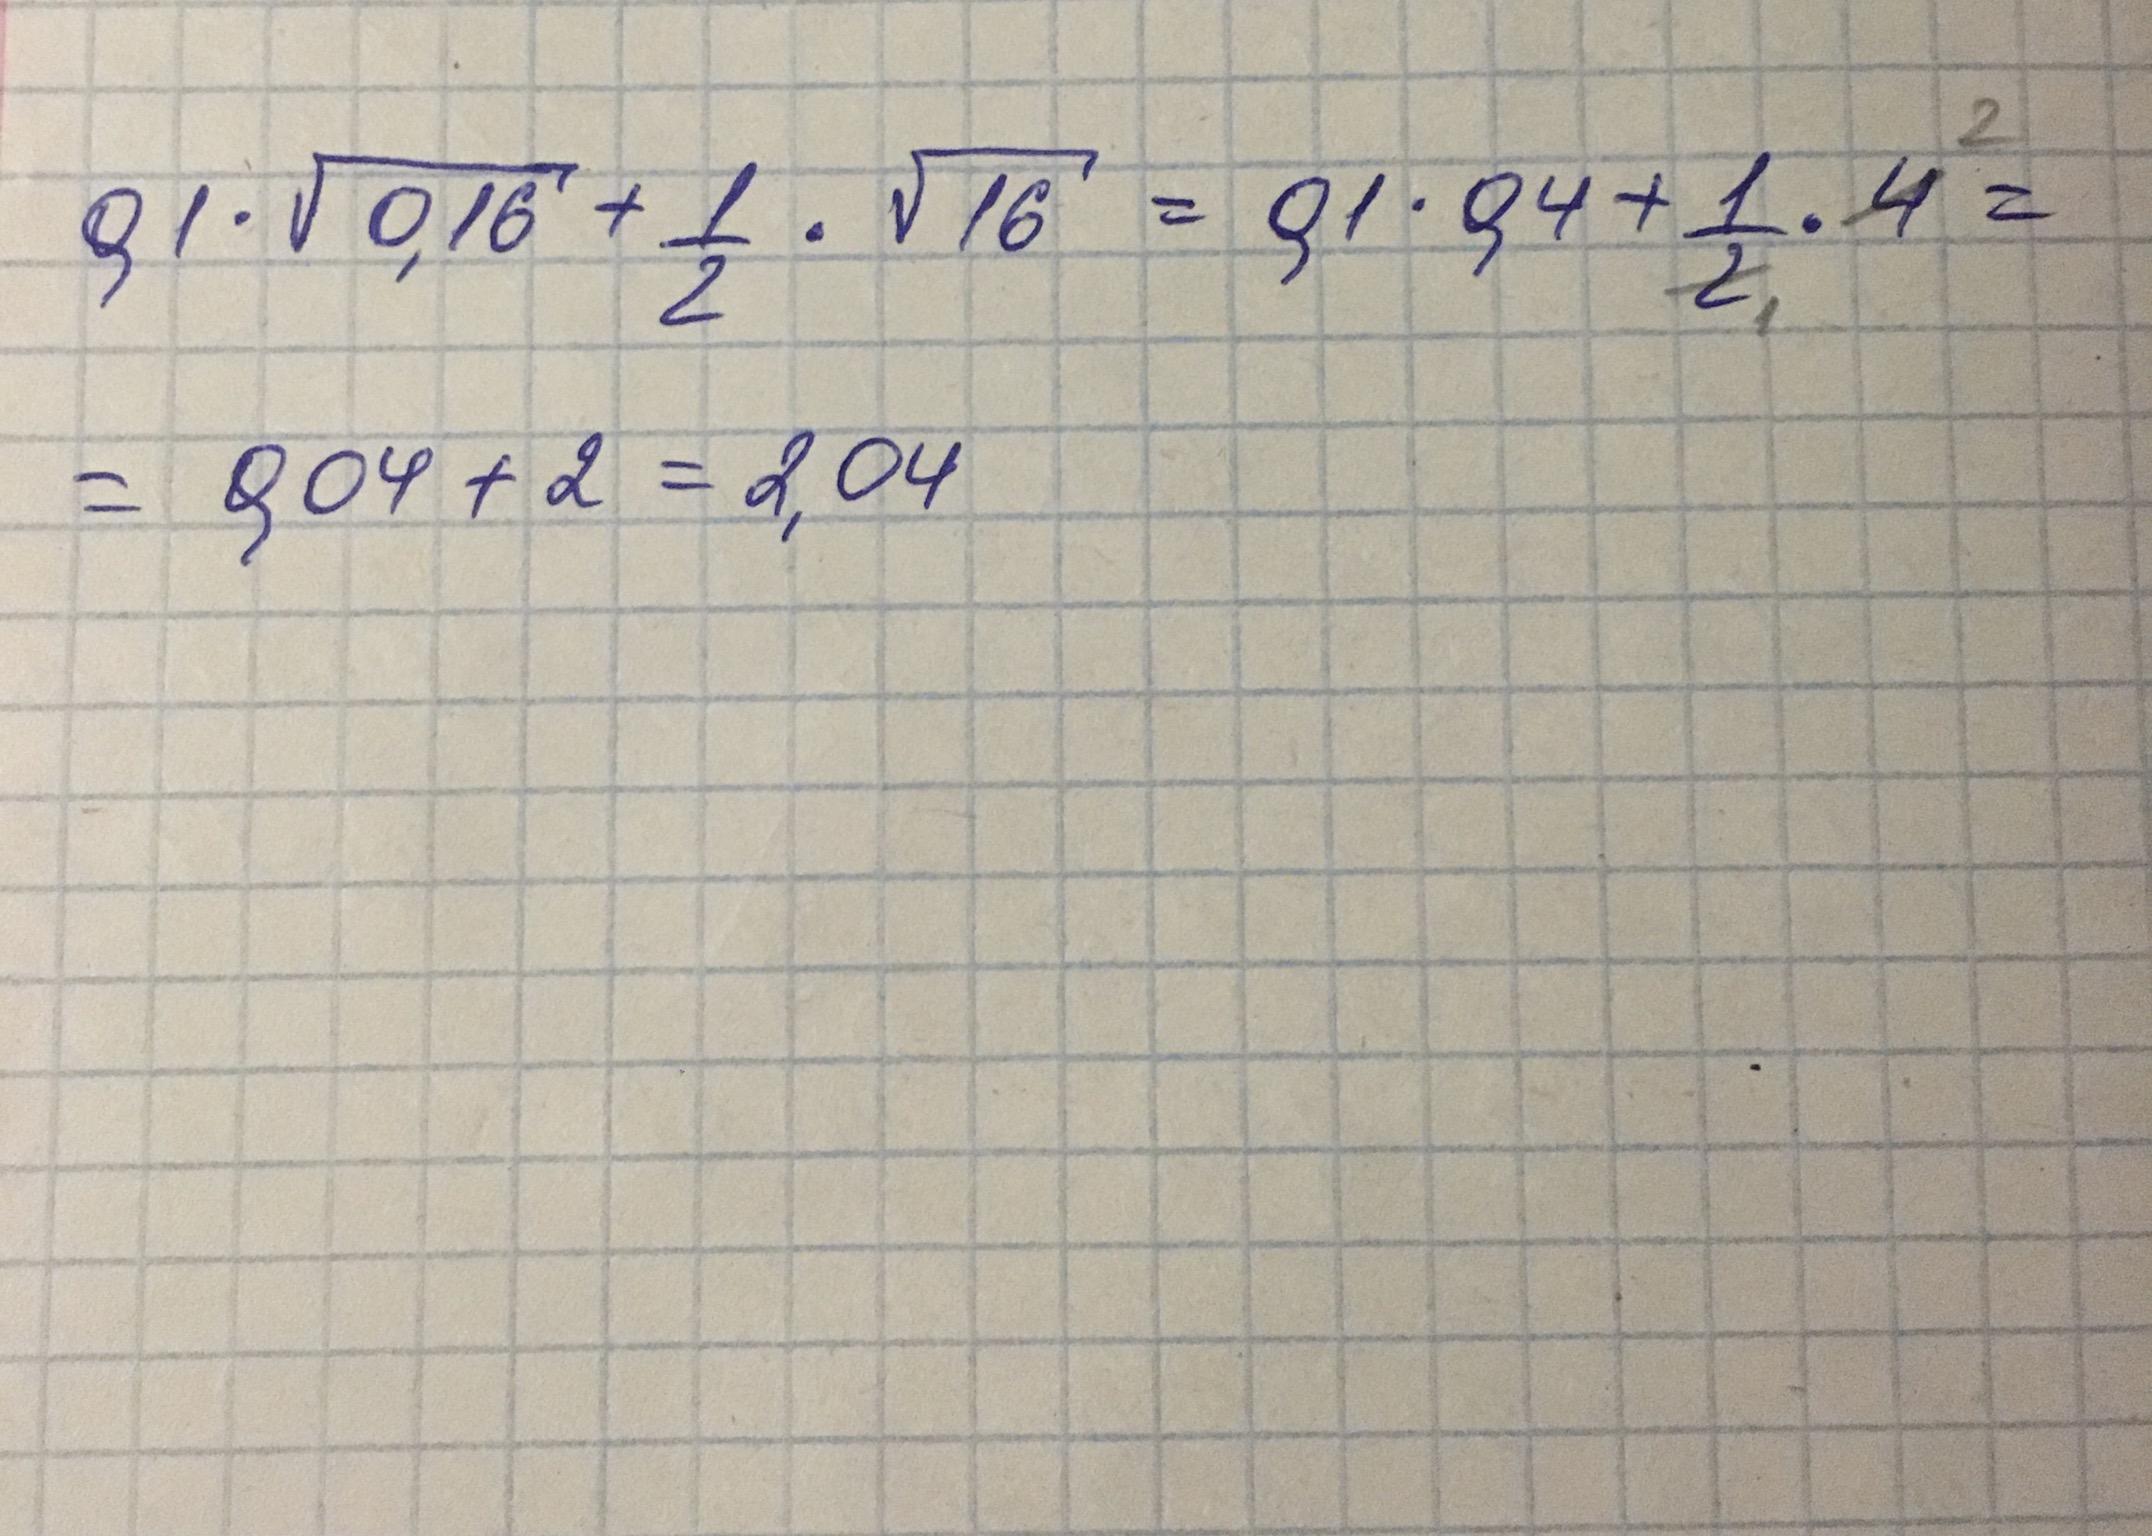 0,1 · √0,16 + 1/2 · √16 = 0,1 · 0,4 + 1/2 1 · 4 2 =
= 0,04 + 2 = 2,04